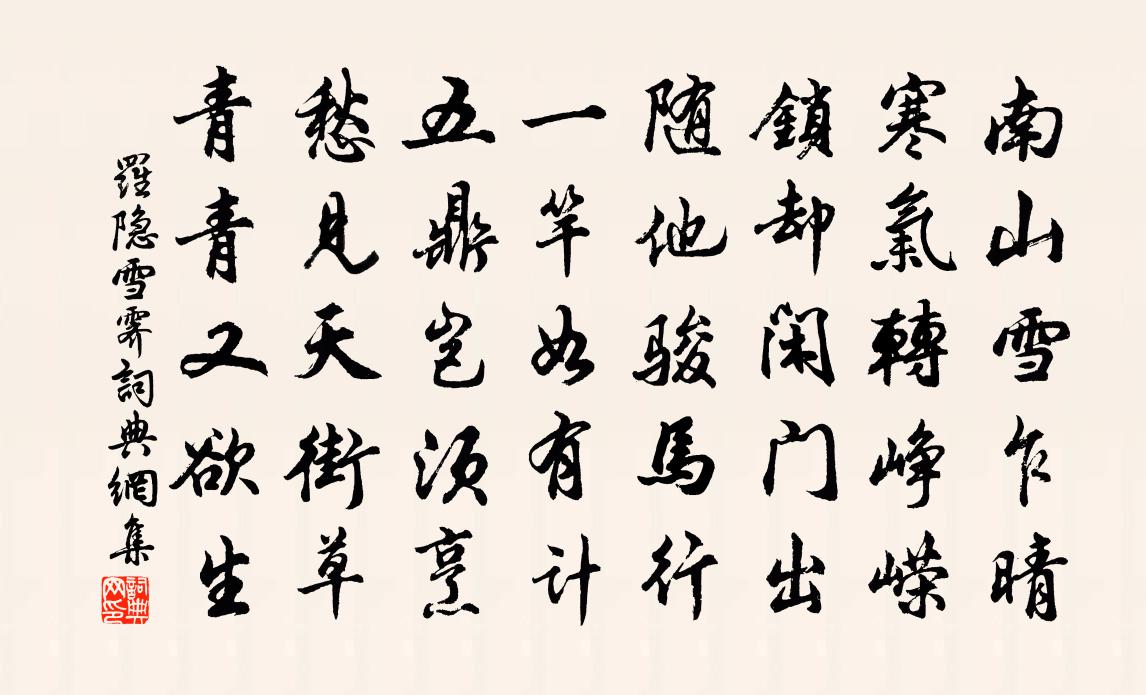 南山雪乍晴
寒氣轉崢嶸
鎖却閑门出
随他骏馬行
一竿如有计
五鼎岂须烹
愁見天街草
青青又欲生
羅隐雪霁詞典網集
詞典网印